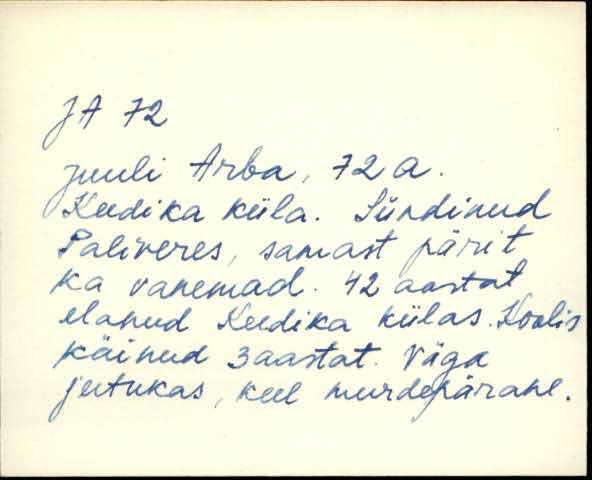 JA 72
Juuli Arba, 72 a.
Keedika küla. Sündinud
Paliveres, samast pärit
ka vanemad. 42 aastat
elanud Keedika külas. Koolis
käinud 3 aastat. Väga
jutukas, keel murdepärane.